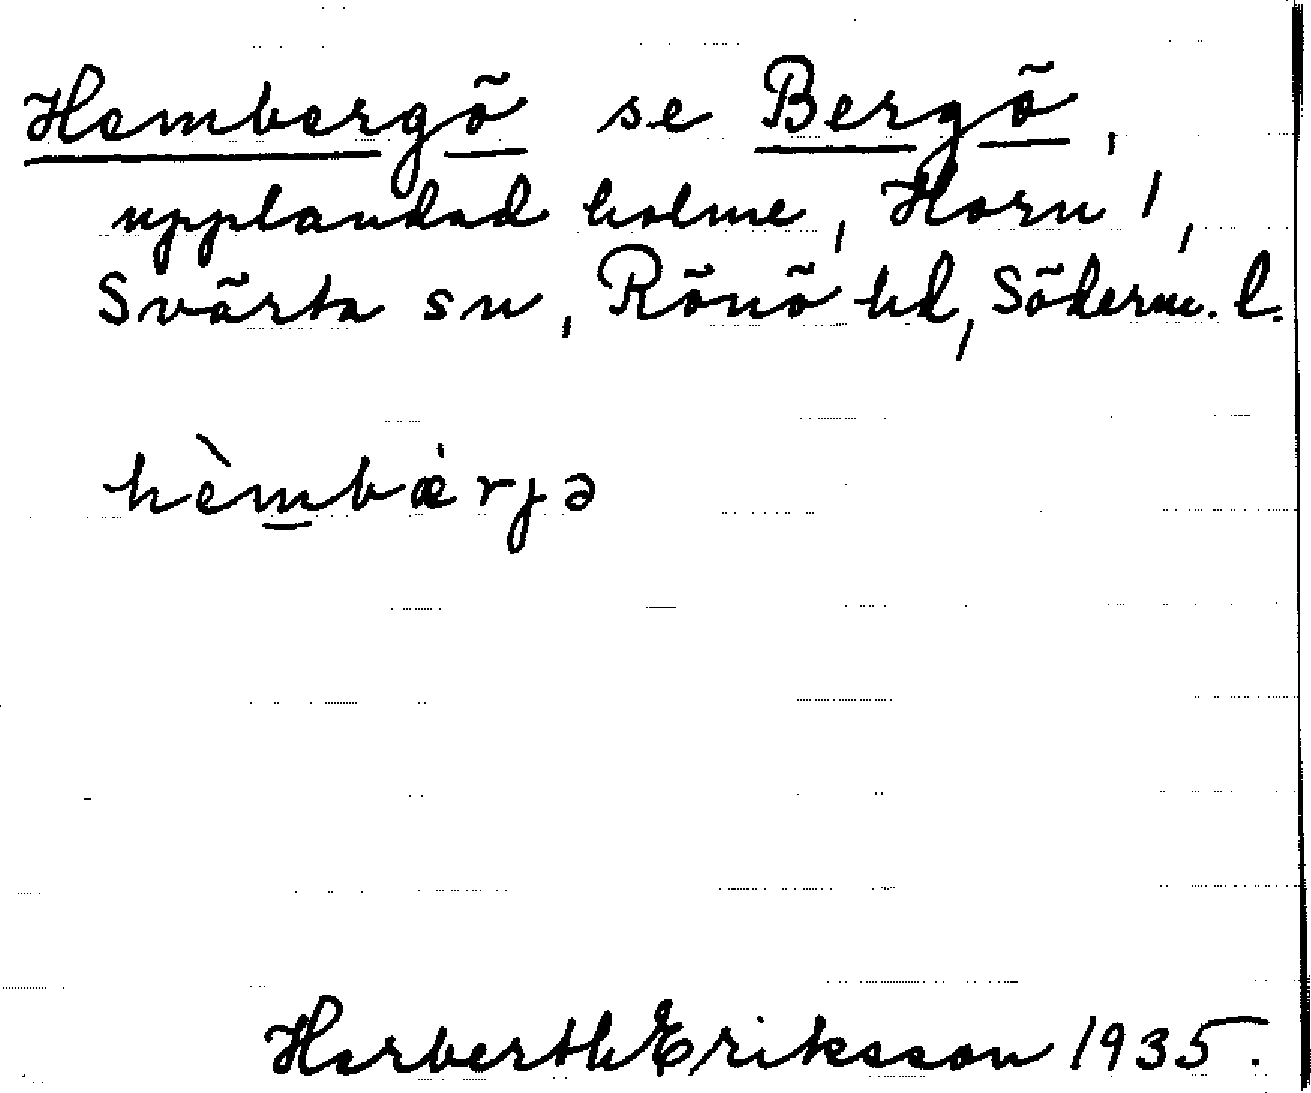 Hembergö se Bergö,
upplandad holme, Horn 1,
Svärta sn, Rönö hd, Söderm. l.
hèmbæ̀rjə
Herberth Eriksson 1935.